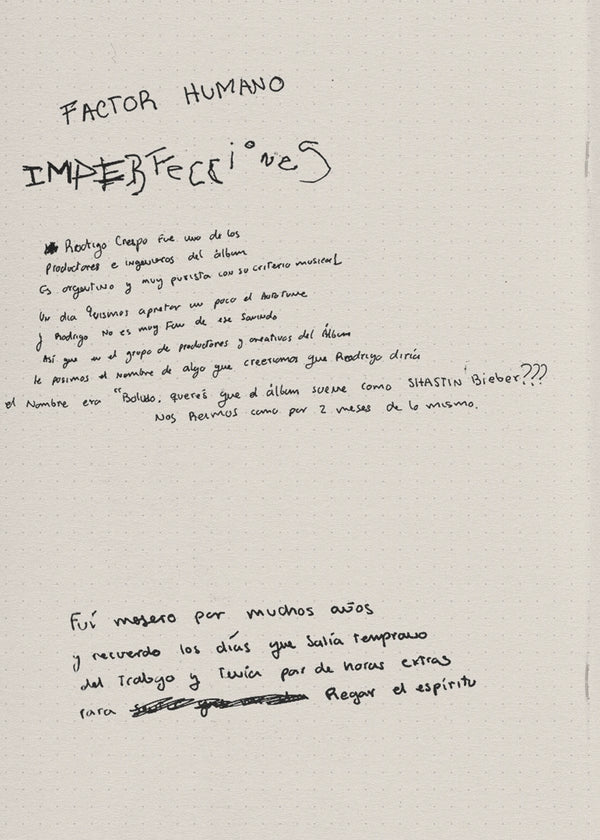 FACTOR HUMANO
IMPERFECCIONES
Rodrigo Crespo fue uno de los
Productores e ingenieros del álbum
Es argentino y muy purista con su criterio musical
Un día Quisimos apretar un poco el Autotune
y Rodrigo No es muy Fan de ese Sonido
Así que en el grupo de productores y creativos del Álbum
le pusimos el Nombre de algo que creeriamos que Rodrigo diría
el Nombre era "Boludo, querés que el álbum suene como SHASTIN Bieber???
Nos Reimos como por 2 meses de lo mismo.
Fuí mesero por muchos años
y recuerdo los días que Salía temprano
del trabajo y Tenía par de horas extras
para Regar el espíritu